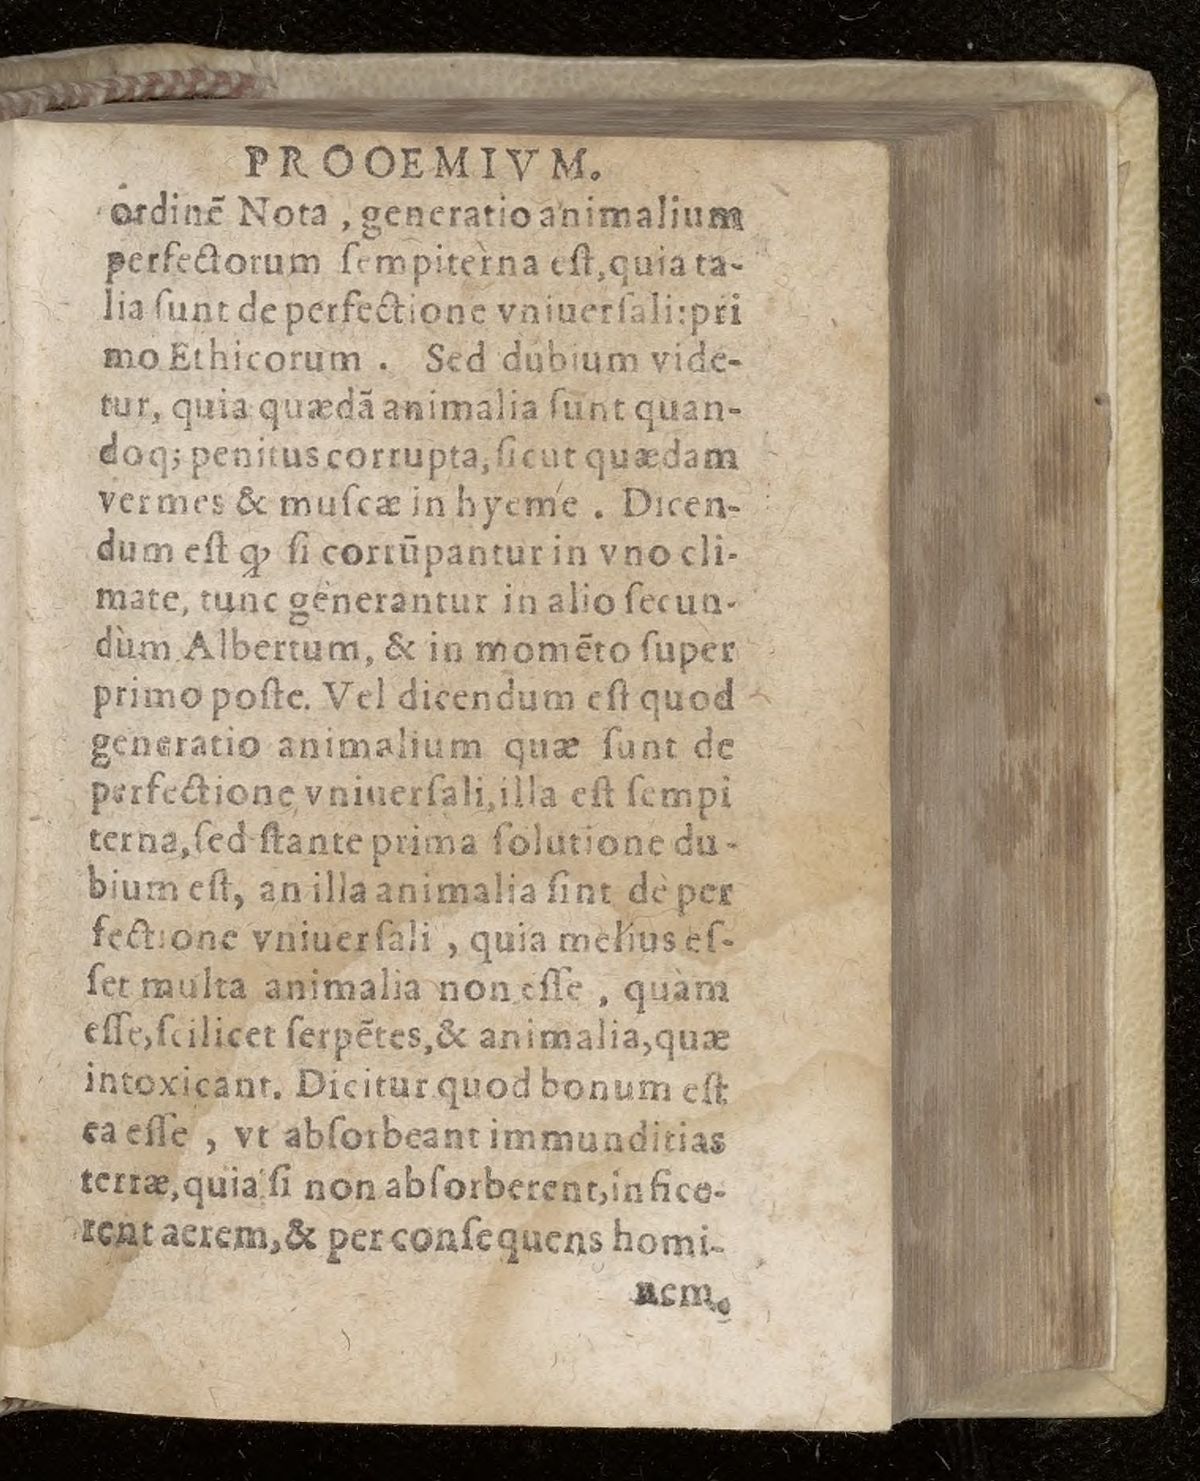 PROOEMIVM.
ordinẽ Nota , generatio animalium
perfectorum ſempiterna eſt, quia ta-
lia ſunt de perfectione vniuerſali: pri
mo Ethicorum . Sed dubium vide-
tur, quia quædã animalia ſunt quan-
doq; penitus corrupta, ſicut quædam
vermes & muſcæ in hyeme . Dicen-
dum eſt ꝙ ſi corrũpantur in vno cli-
mate, tunc generantur in alio ſecun-
dùm Albertum, & in momẽto ſuper
primo poſte. Vel dicendum eſt quod
generatio animalium quæ ſunt de
perfectione vniuerſali, illa eſt ſempi
terna, ſed ſtante prima ſolutione du-
bium eſt, an illa animalia ſint de per
fectione vniuerſali , quia melius eſ-
ſet multa animalia non eſſe , quàm
eſſe, ſcilicet ſerpẽtes, & animalia, quæ
intoxicant. Dicitur quod bonum eſt
ea eſſe , vt abſorbeant immunditias
terræ, quia ſi non abſorberent, infice-
rent aerem, & per conſequens homi-
nem.